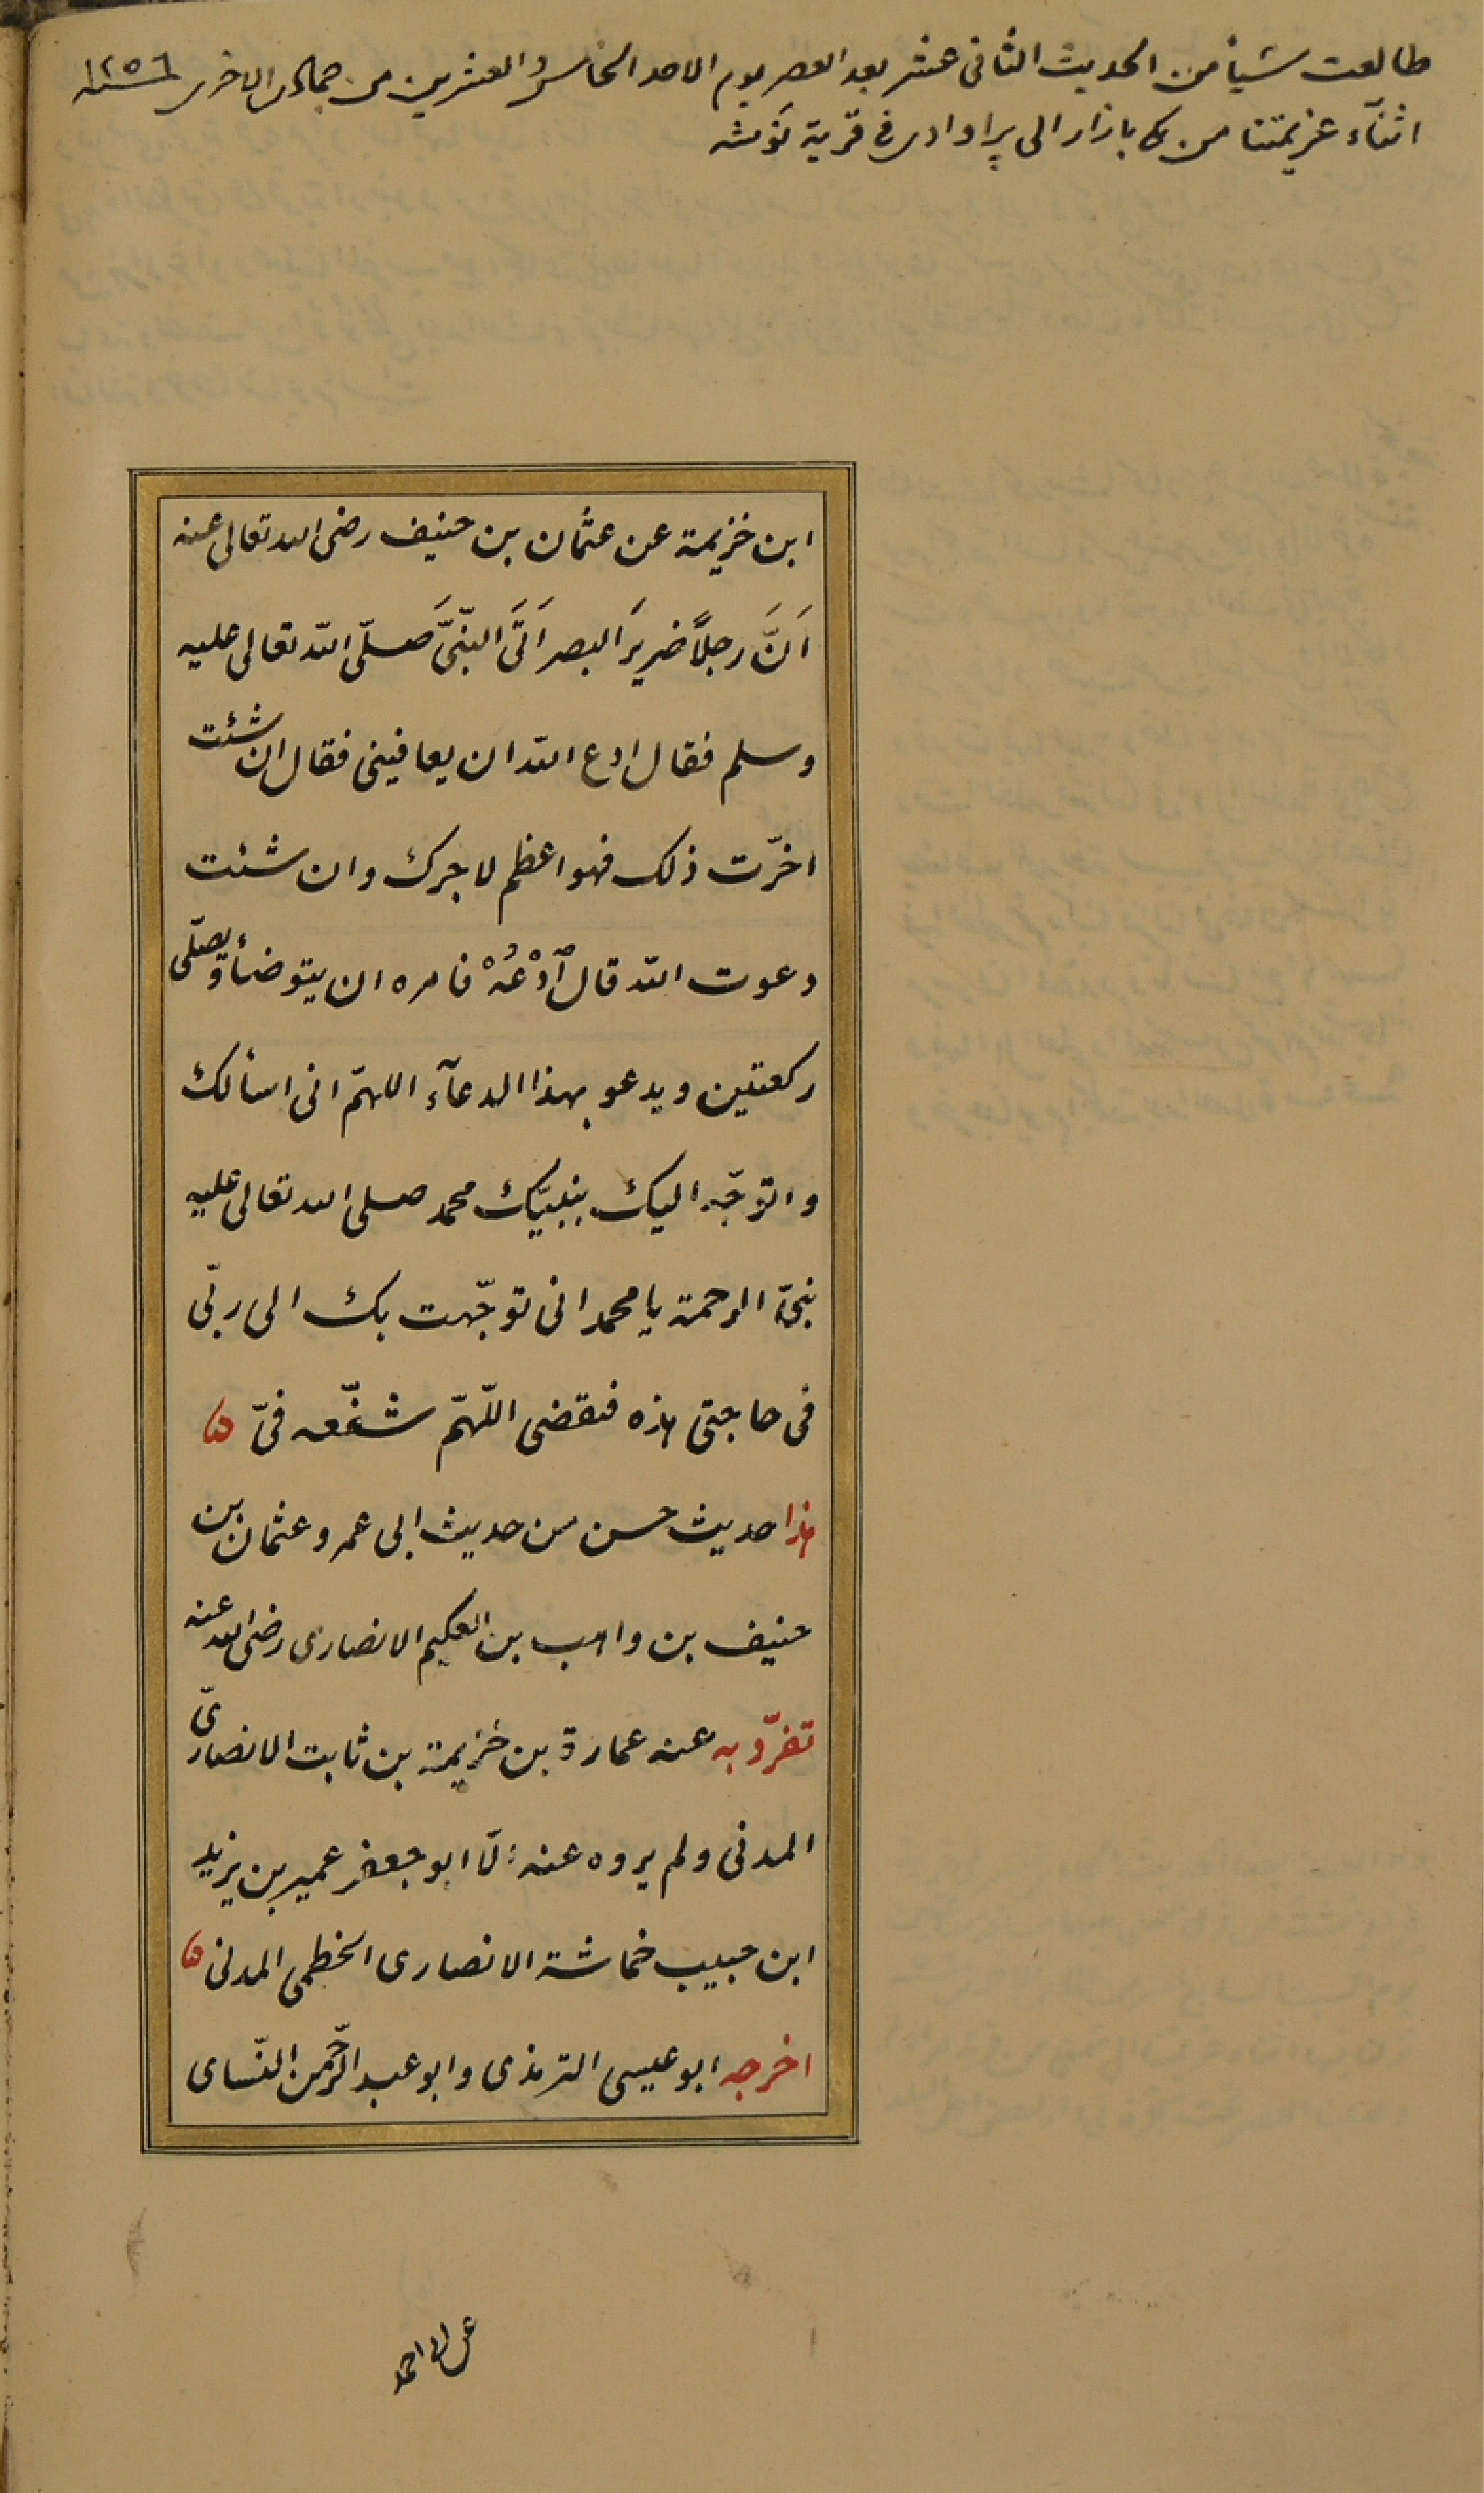 طالعت شيأ من الحديث الثانى عشر بعد العصر يوم الاحد الخامس والعشرين من جمادى الاخرى ١٢٥٦
اثنآء عزيمتنا من يكى بازار الى پراوادى فى قرية
ابن خزيمة عن عثمان بن حنيف رضى الله تعالى عنه
اَنَّ رجلاً ضريرَ البصر اَتَى النبّىَّ صلّى الله تعالى عليه
وسلم فقال ادع الله ان يعافينى فقال ان شئت
اخّرت ذلك فهو اعظم لاجرك وان شئت
دعوت الله قال اُدْعُهْ فامره ان يتوضأ ويصلّى
ركعتين ويدعو بهذا الدعآء اللهمّ انى اسألك
واتوجّه اليك بنبيّك محمد صلى الله تعالى عليه
نبىّ الرحمة يا محمد انى توجّهت بك الى ربّى
فى حاجتى هذه فتقضى اللّهمّ شفّعه فىّ
هذا حديث حسن من حديث ابى عمرو عثمان بن
حنيف بن واهب بن العكيم الانصارى رضى الله عنه
تفرّد به عنه عمارة بن خزيمة بن ثابت الانصارىّ
المدنى ولم يروه عنه الّا ابو جعفر عمير بن يزيد
ابن حبيب خماشة الانصارى الخطمى المدنى
اخرجه ابو عيسى الترمذى وابو عبد الرّحمن النّساى